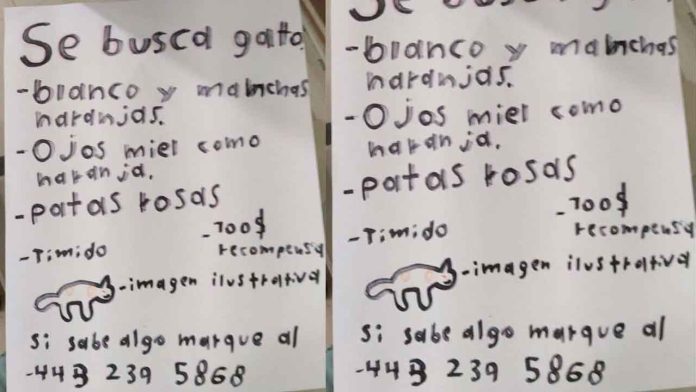 Se busca gatto.
-blanco y mainchas
naranjas.
-Ojos miel como
naranja.
-patas rosas
-Timido
-100$
recompensa
-imagen ilustrativa
si sabe algo marque al
-443 239 5868
Se busca gatto.
-blanco y mainchas
naranjas.
-Ojos miel como
naranja.
-patas rosas
-Timido
-100$
recompensa
-imagen ilustrativa
si sabe algo marque al
-443 239 5868